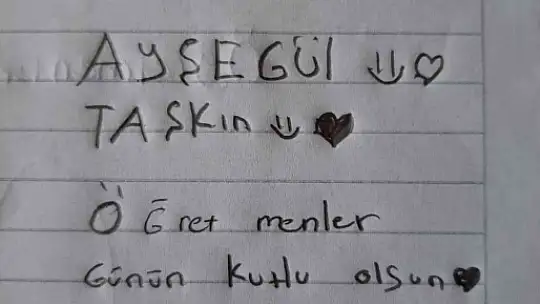 AYŞEGÜl ü♡
TAŞKın ü♥
Ö Ğret menler
Günün Kutlu olsun♥